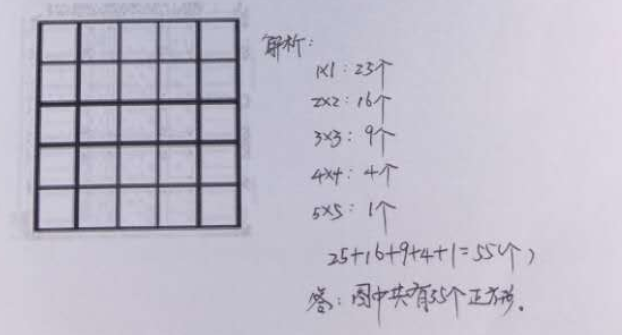 解析:
1×1:25个
2×2:16个
3×3:9个
4×4:4个
5×5:1个
25+16+9+4+1=55(个)
答:图中共有55个正方形.